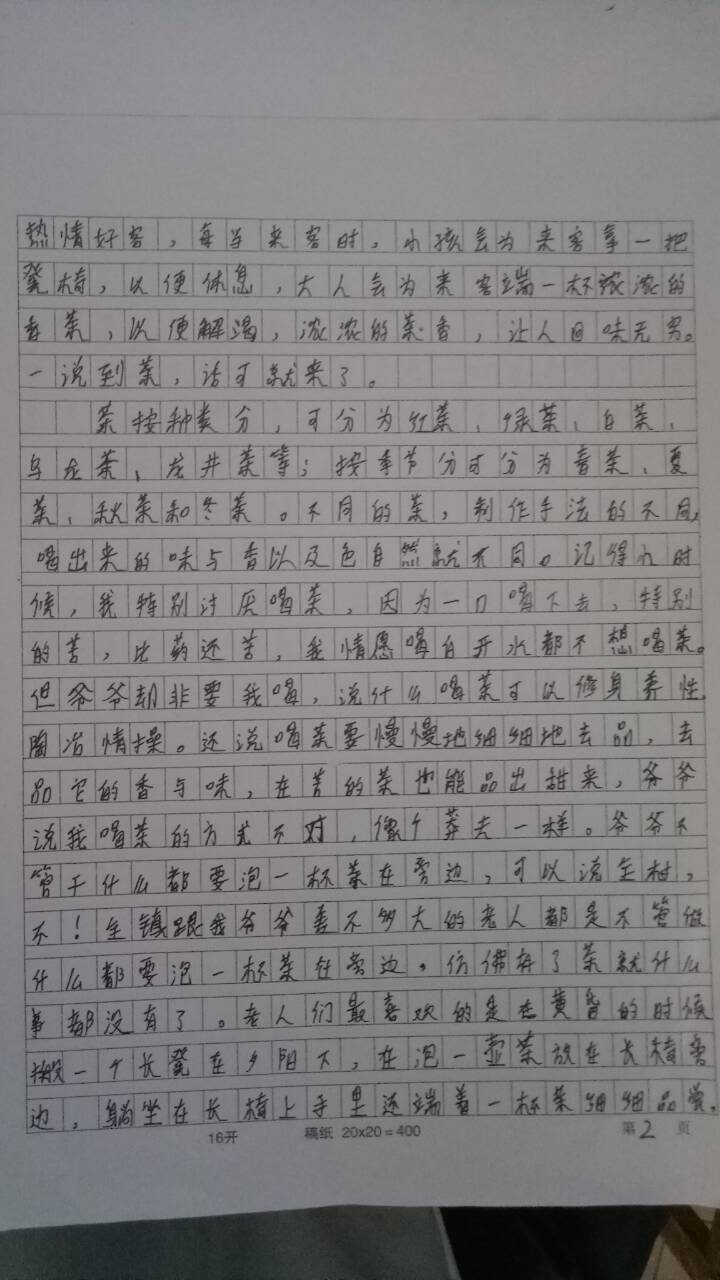 热情好客，每当来客时，小孩会为来客拿一把
凳椅，以便休息，大人会为来客端一杯浓浓的
香茶，以便解渴，浓浓的茶香，让人回味无穷。
一说到茶，话可就来了。
茶按种类分，可分为红茶、绿茶、白茶、
乌龙茶、龙井茶等；按季节分可分为春茶、夏
茶、秋茶和冬茶。不同的茶，制作手法的不同，
喝出来的味与香以及色自然就不同。记得小时
候，我特别讨厌喝茶，因为一口喝下去，特别
的苦，比药还苦，我情愿喝白开水都不想喝茶。
但爷爷却非要我喝，说什么喝茶可以修身养性，
陶冶情操。还说喝茶要慢慢地细细地去品，去
品它的香与味，在苦的茶也能品出甜来，爷爷
说我喝茶的方式不对，像个莽夫一样。爷爷不
管干什么都要泡一杯茶在旁边，可以说全村，
不！全镇跟我爷爷差不多大的老人都是不管做
什么都要泡一杯茶在旁边。仿佛有了茶就什么
事都没有了。老人们最喜欢的是在黄昏的时候
搬一个长凳在夕阳下，在泡一壶茶放在长椅旁
边，躺坐在长椅上手里还端着一杯茶细细品尝，
16开 稿纸 20x20=400 第2頁